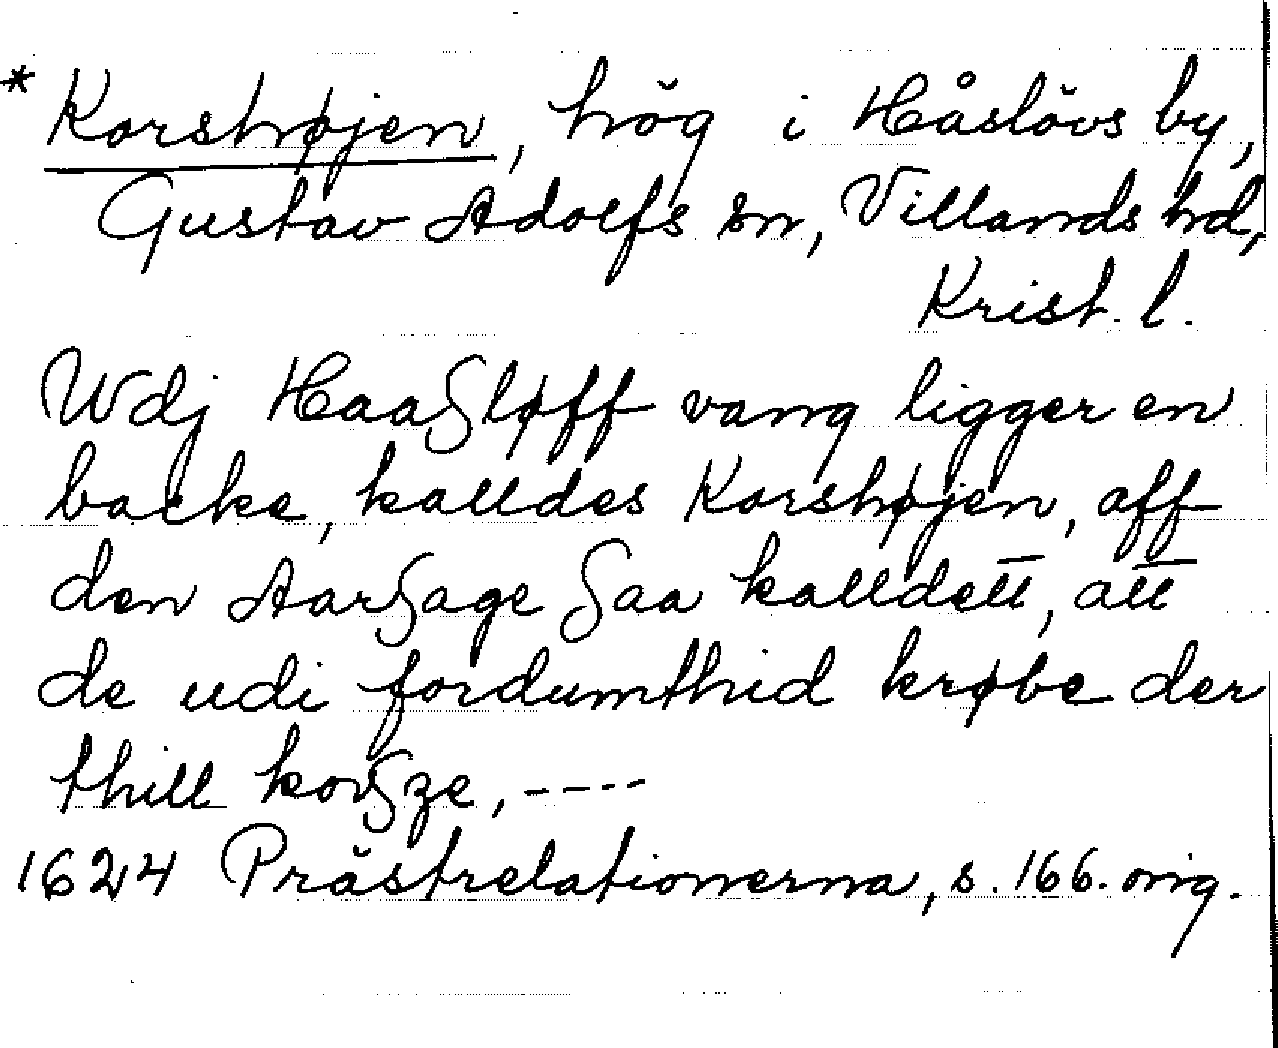 * Korshøjen, hög i Håslövs by,
Gustav Adolfs sn, Villands hd,
Krist. l.
Wdj Haaʃløff vang ligger en
backe, kalldes Korshøjen, aff
den Aarʃage ʃaa kalldett, att
de udi fordumthid krøbe der
thill korʃze, ----
1624 Prästrelationerna, s. 166. orig.